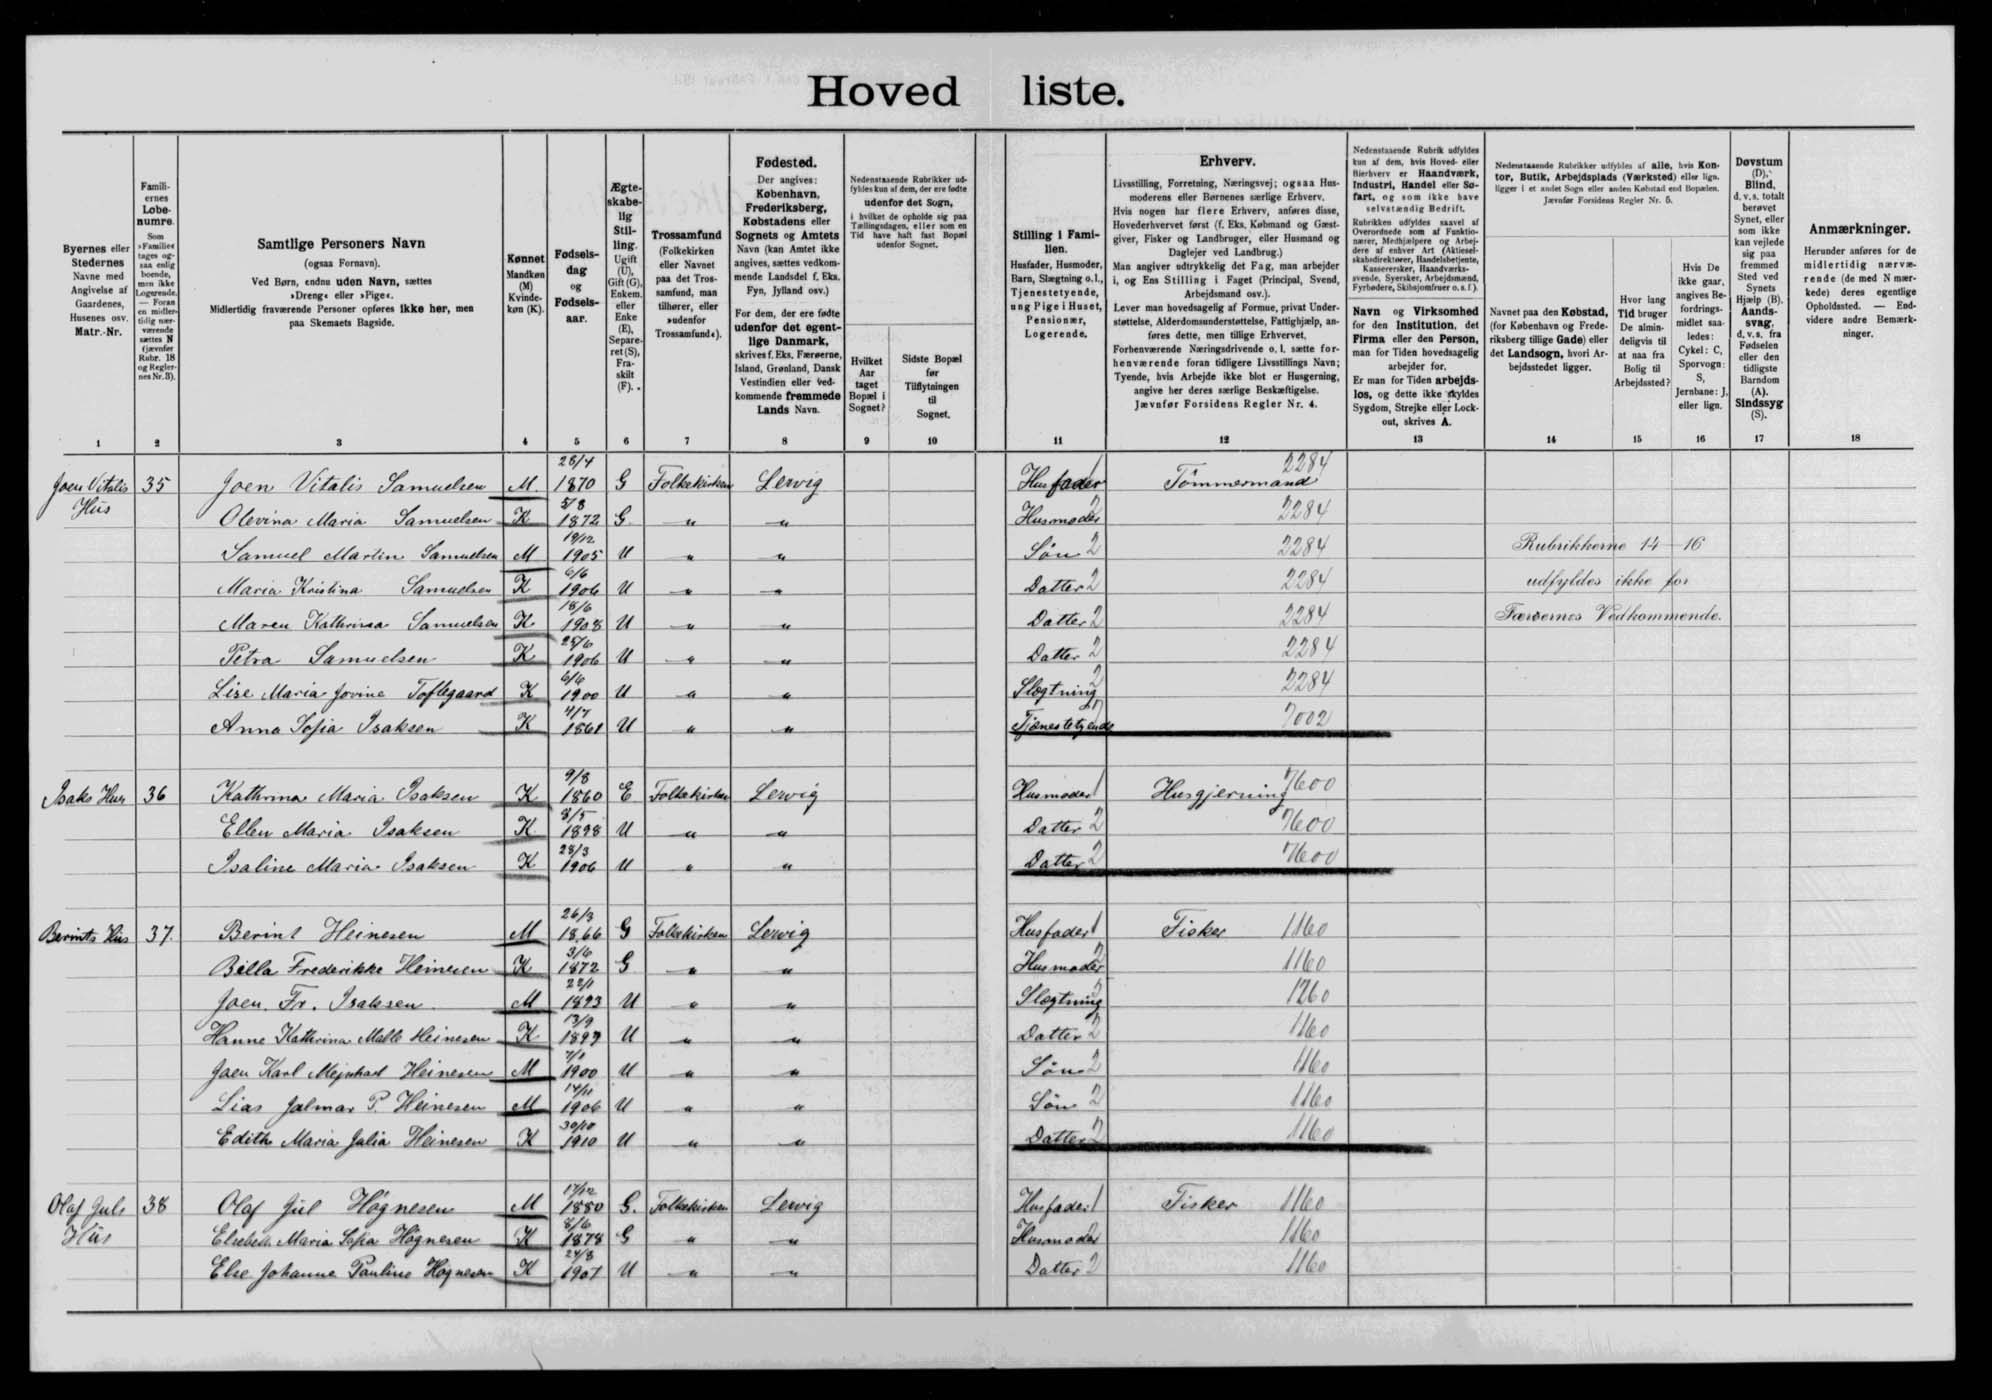 Hoved liste.
Byernes eller Stedernes Navne med Angivelse af Gaardenes, Husenes osv. Matr.-Nr.
Familiernes Løbenumre. Som »Familie« tages ogsaa enlig boende, men ikke Logerende. — Foran en midlertidig nærværende sættes N (jævnfør Rubr. 18 og Regler- nes Nr. 3).
Samtlige Personers Navn
(ogsaa Fornavn).
Ved Børn, endnu uden Navn, sættes
»Dreng« eller »Pige«.
Midlertidig fraværende Personer opføres ikke her, men
paa Skemaets Bagside.
Kønnet Mandkøn (M) Kvindekøn (K).
Fødselsdag og Fødselsaar.
Ægteskabelig Stilling. Ugift (U), Gift (G), Enkem. eller Enke (E), Separeret (S), Fraskilt (F).
Trossamfund (Folkekirken eller Navnet paa det Trossamfund, man tilhører, eller »udenfor Trossamfund«).
Fødested.
Der angives: København, Frederiksberg, Købstadens eller Sognets og Amtets Navn (kan Amtet ikke angives, sættes vedkommende Landsdel f. Eks. Fyn, Jylland osv.)
For dem, der ere fødte udenfor det egentlige Danmark, skrives f. Eks. Færøerne, Island, Grønland, Dansk Vestindien eller vedkommende fremmede Lands Navn.
Nedenstaaende Rubrikker udfyldes kun af dem, der ere fødte udenfor det Sogn, i hvilket de opholde sig paa Tællingsdagen, eller som en Tid have haft fast Bopæl udenfor Sognet.
Hvilket Aar taget Bopæl i Sognet?
Sidste Bopæl før Tilflytningen til Sognet.
Stilling i Familien.
Husfader, Husmoder, Barn, Slægtning o.l., Tjenestetyende, ung Pige i Huset, Pensionær, Logerende.
Erhverv.
Livsstilling, Forretning, Næringsvej; ogsaa Husmoderens eller Børnenes særlige Erhverv.
Hvis nogen har flere Erhverv, anføres disse, Hovederhvervet først (f. Eks. Købmand og Gæstgiver, Fisker og Landbruger, eller Husmand og Daglejer ved Landbrug.)
Man angiver udtrykkelig det Fag, man arbejder i, og Ens Stilling i Faget (Principal, Svend, Arbejdsmand osv.).
Lever man hovedsagelig af Formue, privat Understøttelse, Alderdomsunderstøttelse, Fattighjælp, anføres dette, men tillige Erhvervet.
Forhenværende Næringsdrivende o. l. sætte forhenværende foran tidligere Livsstillings Navn; Tyende, hvis Arbejde ikke blot er Husgerning, angive her deres særlige Beskæftigelse.
Jævnfør Forsidens Regler Nr. 4.
Nedenstaaende Rubrik udfyldes kun af dem, hvis Hoved- eller Bierhverv er Haandværk, Industri, Handel eller Søfart, og som ikke have selvstændig Bedrift.
Rubrikken udfyldes saavel af Overordnede som af Funktionærer, Medhjælpere og Arbejdere af enhver Art (Aktieselskabsdirektører, Handelsbetjente, Kasserersker, Haandværkssvende, Syersker, Arbejdsmænd, Fyrbødere, Skibsjomfruer o. s. f.).
Navn og Virksomhed for den Institution, det Firma eller den Person, man for Tiden hovedsagelig arbejder for.
Er man for Tiden arbejdsløs, og dette ikke skyldes Sygdom, Strejke eller Lockout, skrives A.
Nedenstaaende Rubrikker udfyldes af alle, hvis Kontor, Butik, Arbejdsplads (Værksted) eller lign. ligger i et andet Sogn eller anden Købstad end Bopælen.
Jævnfør Forsidens Regler Nr. 5.
Navnet paa den Købstad, (for København og Frederiksberg tillige Gade) eller det Landsogn, hvori Arbejdsstedet ligger.
Hvor lang Tid bruger De almindeligvis til at naa fra Bolig til Arbejdssted?
Hvis De ikke gaar, angives Befordringsmidlet saaledes: Cykel: C, Sporvogn: S, Jernbane: J, eller lign.
Døvstum (D), Blind, d. v. s. totalt berøvet Synet, eller som ikke kan vejlede sig paa fremmed Sted ved Synets Hjælp (B). Aandssvag, d. v. s. fra Fødselen eller den tidligste Barndom (A). Sindssyg (S).
Anmærkninger.
Herunder anføres for de midlertidig nærværende (de med N mærkede) deres egentlige Opholdssted. — Endvidere andre Bemærkninger.
1 2 3 4 5 6 7 8 9 10 11 12 13 14 15 16 17 18
Joen Vitalis Hus 35 Joen Vitalis Samuelsen M. 28/4 1870 G Folkekirken Lervig Husfader 1 Tömmermand 2284
Olevina Maria Samuelsen K 5/8 1872 G. " " Husmoder 2 2284
Samuel Martin Samuelsen M 19/12 1905 U " " Sön 2 2284 Rubrikkerne 14–16
Maria Kristina Samuelsen K 6/6 1906 U " " Datter 2 2284 udfyldes ikke for
Maren Kathrina Samuelsen K 18/6 1908 U " " Datter 2 2284 Færøernes Vedkommende.
Petra Samuelsen K 25/6 1906 U " " Datter 2 2284
Lise Maria Jovine Toftegaard K 6/6 1900 U " " Slægtning 2 2284
Anna Sofia Isaksen K 4/7 1861 U " " Tjenestetyende 7002
Isaks Hus 36 Kathrina Maria Isaksen K 9/8 1860 E Folkekirken Lervig Husmoder 1 Husgjerning 7600
Ellen Maria Isaksen K 8/5 1898 U " " Datter 2 7600
Isaline Maria Isaksen K 28/3 1906 U " " Datter 2 7600
Berints Hus 37. Berint Heinesen M 26/3 1866 G Folkekirken Lervig Husfader 1 Fisker 1160
Billa Frederikke Heinesen K 3/6 1872 G " " Husmoder 2 1160
Joen. Fr. Isaksen M 22/1 1893 U " " Slægtning 2 1260
Hanne Kathrina Malle Heinesen K 13/9 1897 U " " Datter 2 1160
Joen Karl Mejnhart Heinesen M 7/1 1900 U " " Sön 2 1160
Lias Jalmar P. Heinesen M 14/11 1906 U " " Sön 2 1160
Edith Maria Julia Heinesen K 30/10 1910 U " " Datter 2 1160
Olaf Juls Hus 38 Olaf Jül Högnesen M 17/12 1880 G. Folkekirken Lervig Husfader 1 Fisker 1160
Elsebeth Maria Sofia Högnesen K 8/6 1878 G " " Husmoder 2 1160
Else Johanne Pauline Högnesen K 24/8 1907 U " " Datter 2 1160